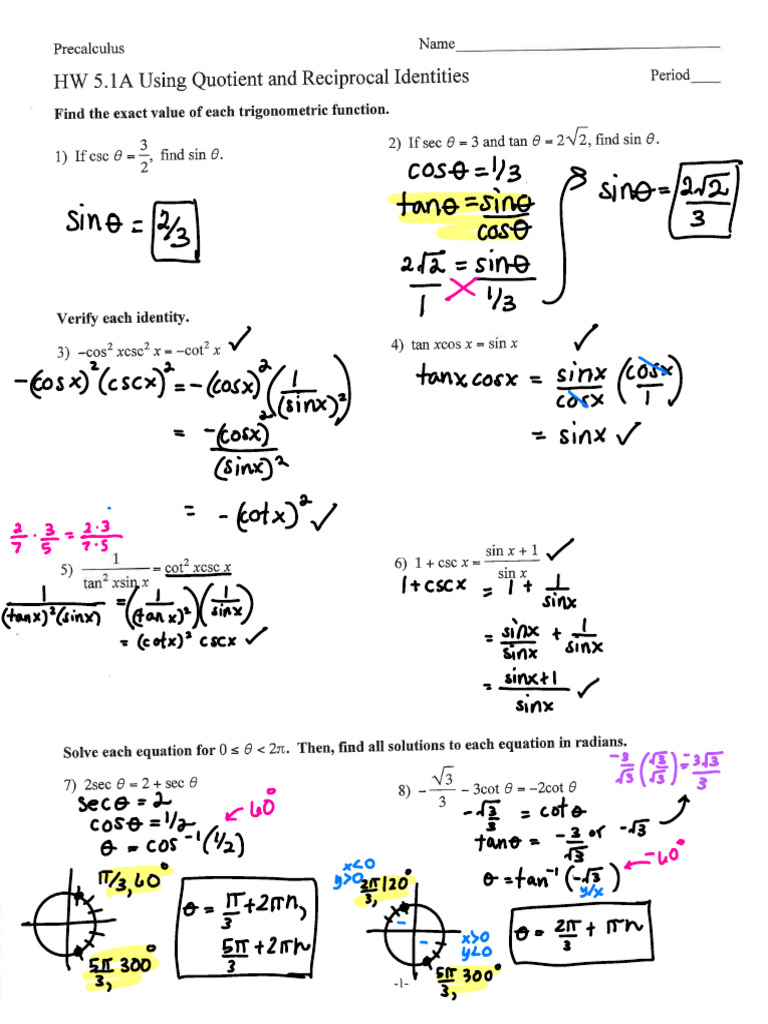 Precalculus
Name
HW 5.1A Using Quotient and Reciprocal Identities
Period
Find the exact value of each trigonometric function.
1) If csc θ = 3/2, find sin θ.
sinθ = 2/3
2) If sec θ = 3 and tan θ = 2√2, find sin θ.
cosθ = 1/3
tanθ = sinθ/cosθ
2√2/1 = sinθ/(1/3)
sinθ = 2√2/3
Verify each identity.
3) −cos² xcsc² x = −cot² x ✓
-(cosx)²(cscx)² = -(cosx)² (1/(sinx)²)
= -(cosx)²/(sinx)²
= -(cotx)² ✓
4) tan xcos x = sin x ✓
tanx cosx = sinx/cosx (cosx/1)
= sinx ✓
2/7 · 3/5 = 2·3/7·5
5) 1/(tan² xsin x) = cot² xcsc x
1/((tanx)²(sinx)) = (1/(tanx)²)(1/sinx)
= (cotx)² cscx ✓
6) 1 + csc x = (sin x + 1)/(sin x) ✓
1+cscx = 1 + 1/sinx
= sinx/sinx + 1/sinx
= (sinx+1)/sinx ✓
Solve each equation for 0 ≤ θ < 2π. Then, find all solutions to each equation in radians.
7) 2sec θ = 2 + sec θ
secθ = 2
cosθ = 1/2
← 60°
θ = cos⁻¹(1/2)
π/3, 60°
5π/3, 300°
θ = π/3 + 2πn,
5π/3 + 2πn
8) −√3/3 − 3cot θ = −2cot θ
-√3/3 = cotθ
tanθ = -3/√3 or -√3
-3/√3 (√3/√3) = -3√3/3
θ = tan⁻¹(-√3)
y/x
← -60°
x<0
y>0
120°
-
-
x>0
y<0
5π/3, 300°
θ = 2π/3 + πn
-1-